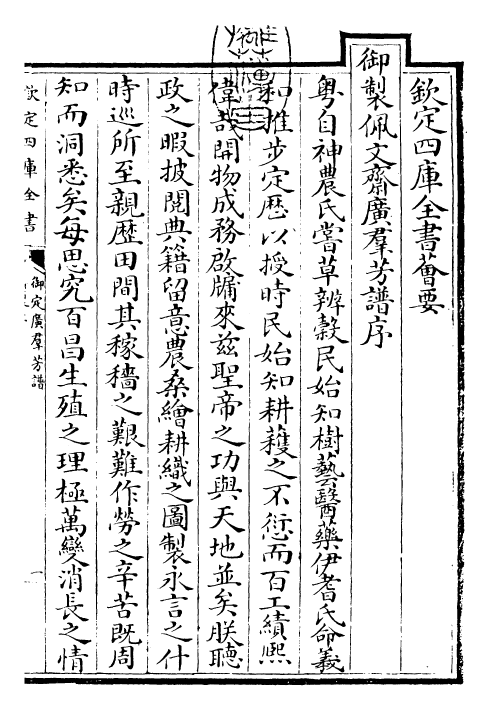 欽定四庫全書薈要
御製佩文齋廣羣芳譜序
粵自神農氏嘗草辨穀民始知樹藝醫藥伊耆氏命羲
和推步定歴以授時民始知耕穫之不愆而百工績熙
偉哉開物成務啟牖來兹聖帝之功與天地並矣朕聽
政之暇披閱典籍留意農桑繪耕織之圖製永言之什
時巡所至親歷田間其稼穡之艱難作勞之辛苦既周
知而洞悉矣每思究百昌生殖之理極萬變消長之情
欽定四庫全書
御定廣羣芳譜
一